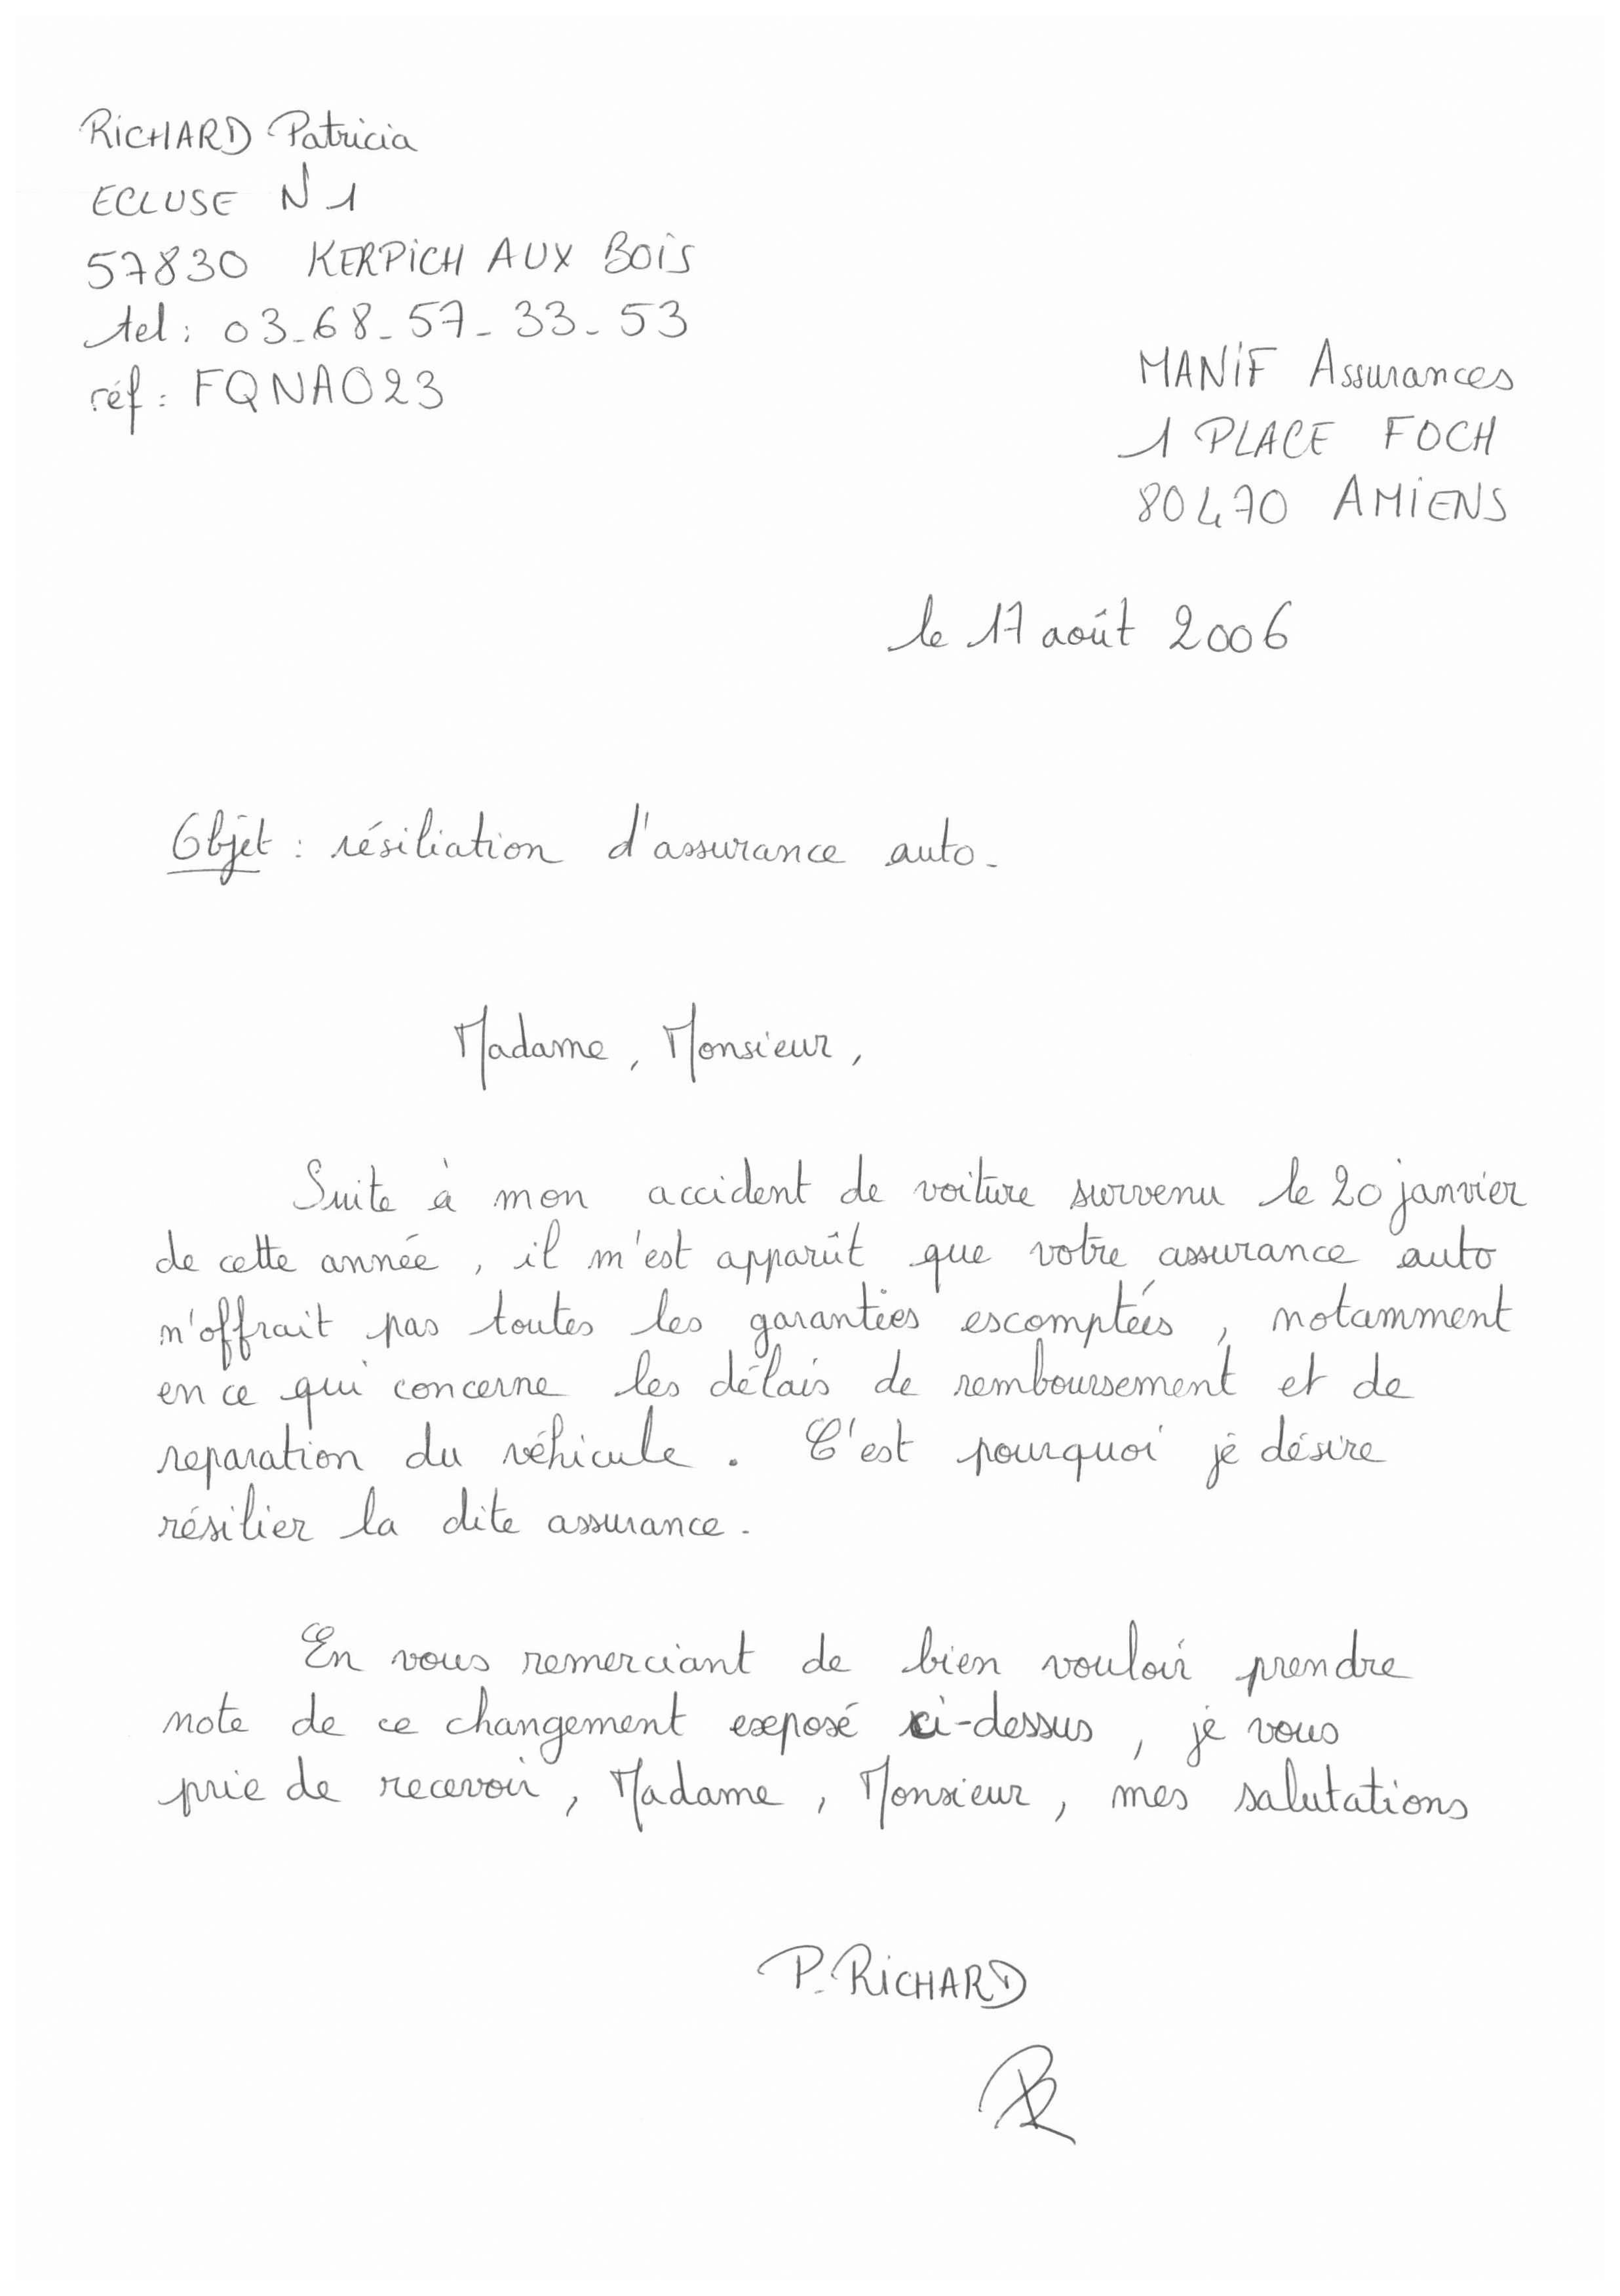 RICHARD Patricia
ECLUSE N 1
57830 KERPICH AUX BOIS
tel : 03-68-57-33-53
réf : FQNAO23
MANIF Assurances
1 PLACE FOCH
80470 AMIENS
le 17 août 2006
Objet : résiliation d'assurance auto.
Madame, Monsieur,
Suite à mon accident de voiture survenu le 20 janvier
de cette année, il m'est apparût que votre assurance auto
n'offrait pas toutes les garanties escomptées, notamment
en ce qui concerne les délais de remboursement et de
reparation du véhicule. C'est pourquoi je désire
résilier la dite assurance.
En vous remerciant de bien vouloir prendre
note de ce changement exposé ci-dessus, je vous
prie de recevoir, Madame, Monsieur, mes salutations
P. RICHARD